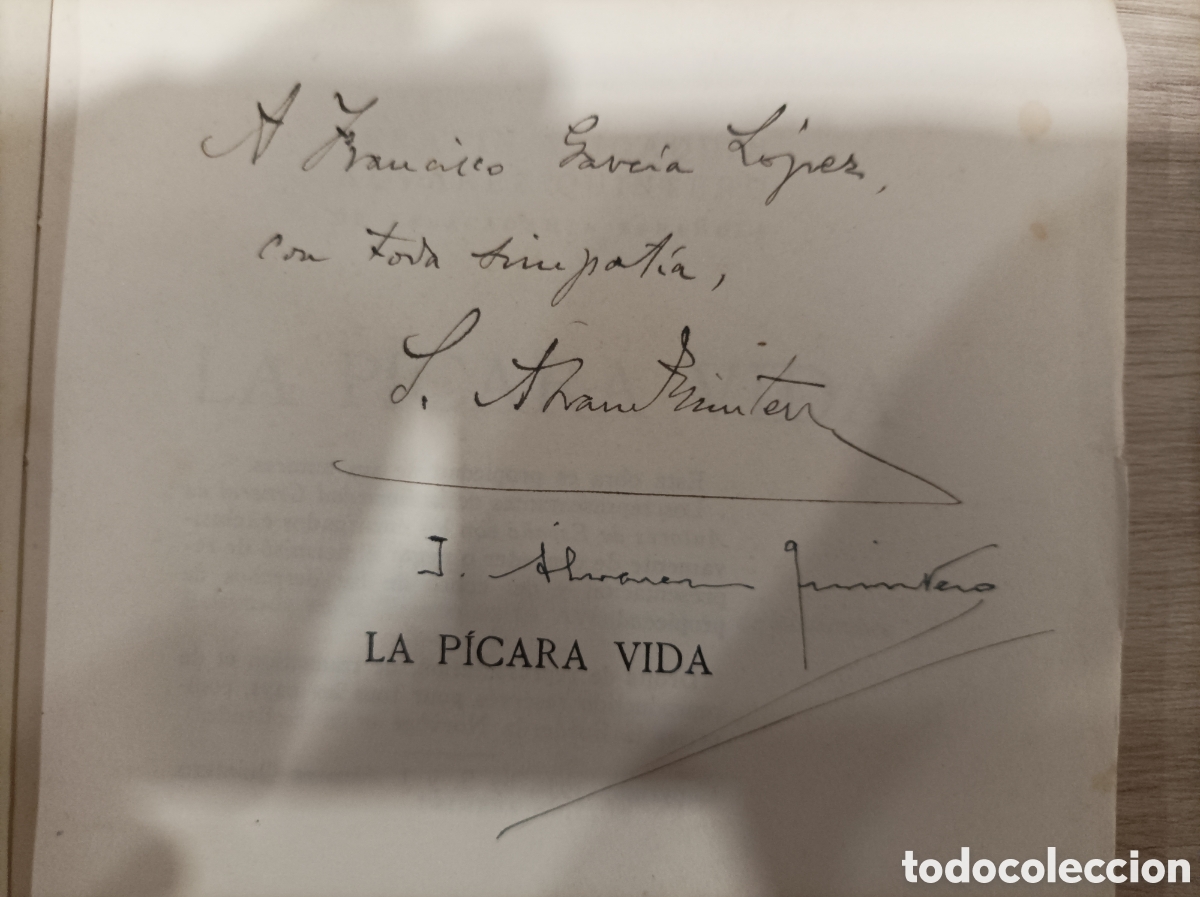 A Francisco García López,
con toda simpatía,
S. Álvarez Quintero
J. Álvarez Quintero
LA PÍCARA VIDA
todocoleccion